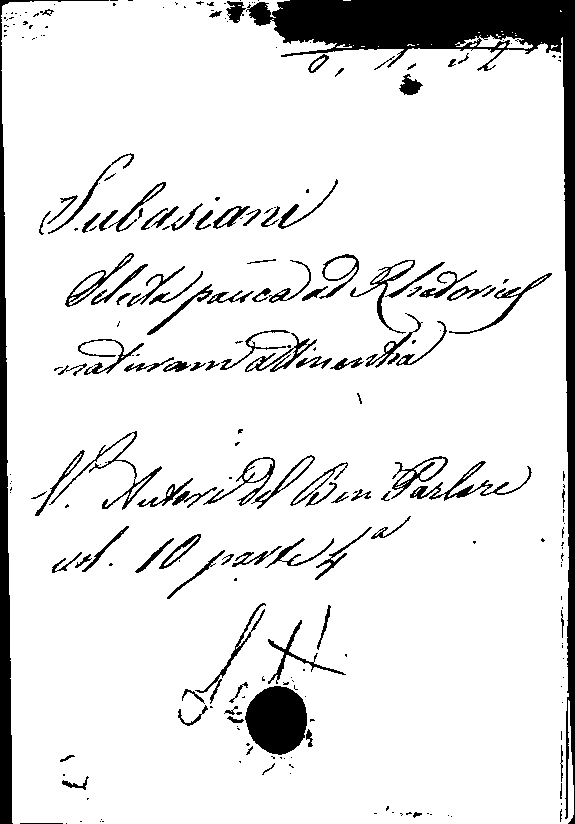 6, 1, 32
Subasiani
Selecta pauca ad Rhetorices
naturam attinentia
V. Autori del Ben Parlare
vol. 10 parte 4a